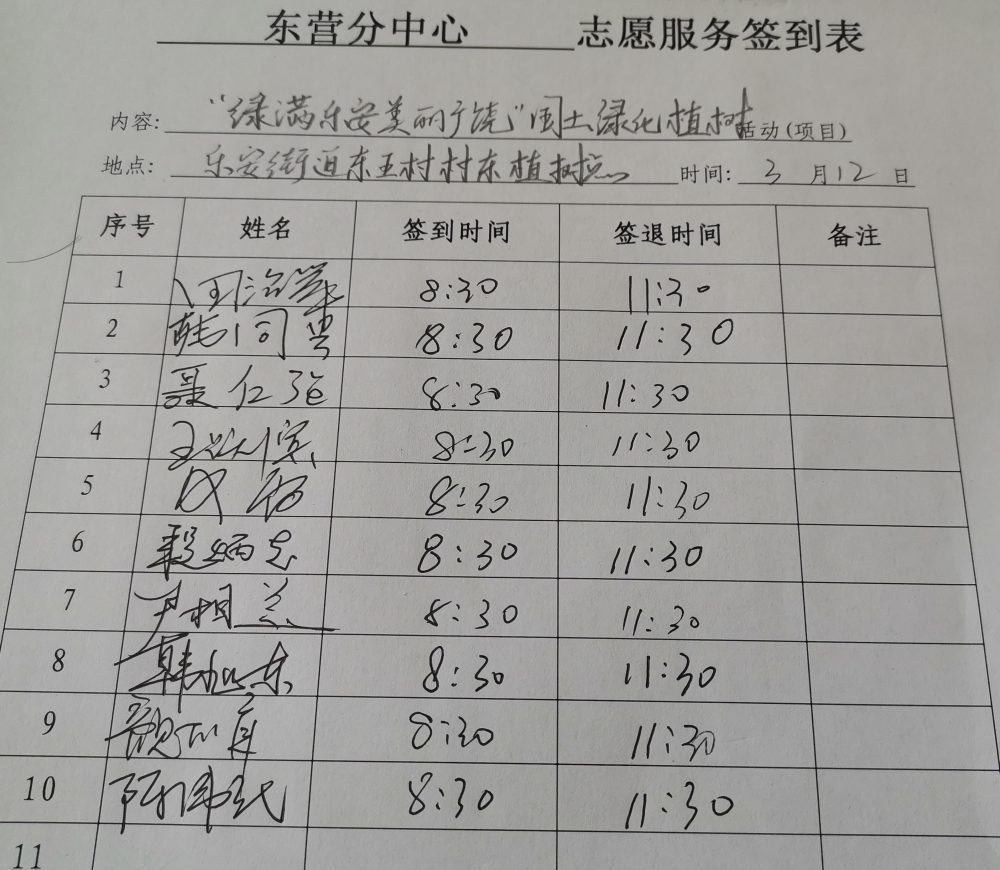 东营分中心 志愿服务签到表
内容: "绿满乐安美丽广饶"国土绿化植树 活动(项目)
地点: 乐安街道东王村村东植树点 时间: 3 月 12 日
序号 姓名 签到时间 签退时间 备注
1 8:30 11:30
2 韩同 8:30 11:30
3 聂仁强 8:30 11:30
4 王 8:30 11:30
5 8:30 11:30
6 炳忠 8:30 11:30
7 尹相兰 8:30 11:30
8 韩旭东 8:30 11:30
9 8:30 11:30
10 8:30 11:30
11